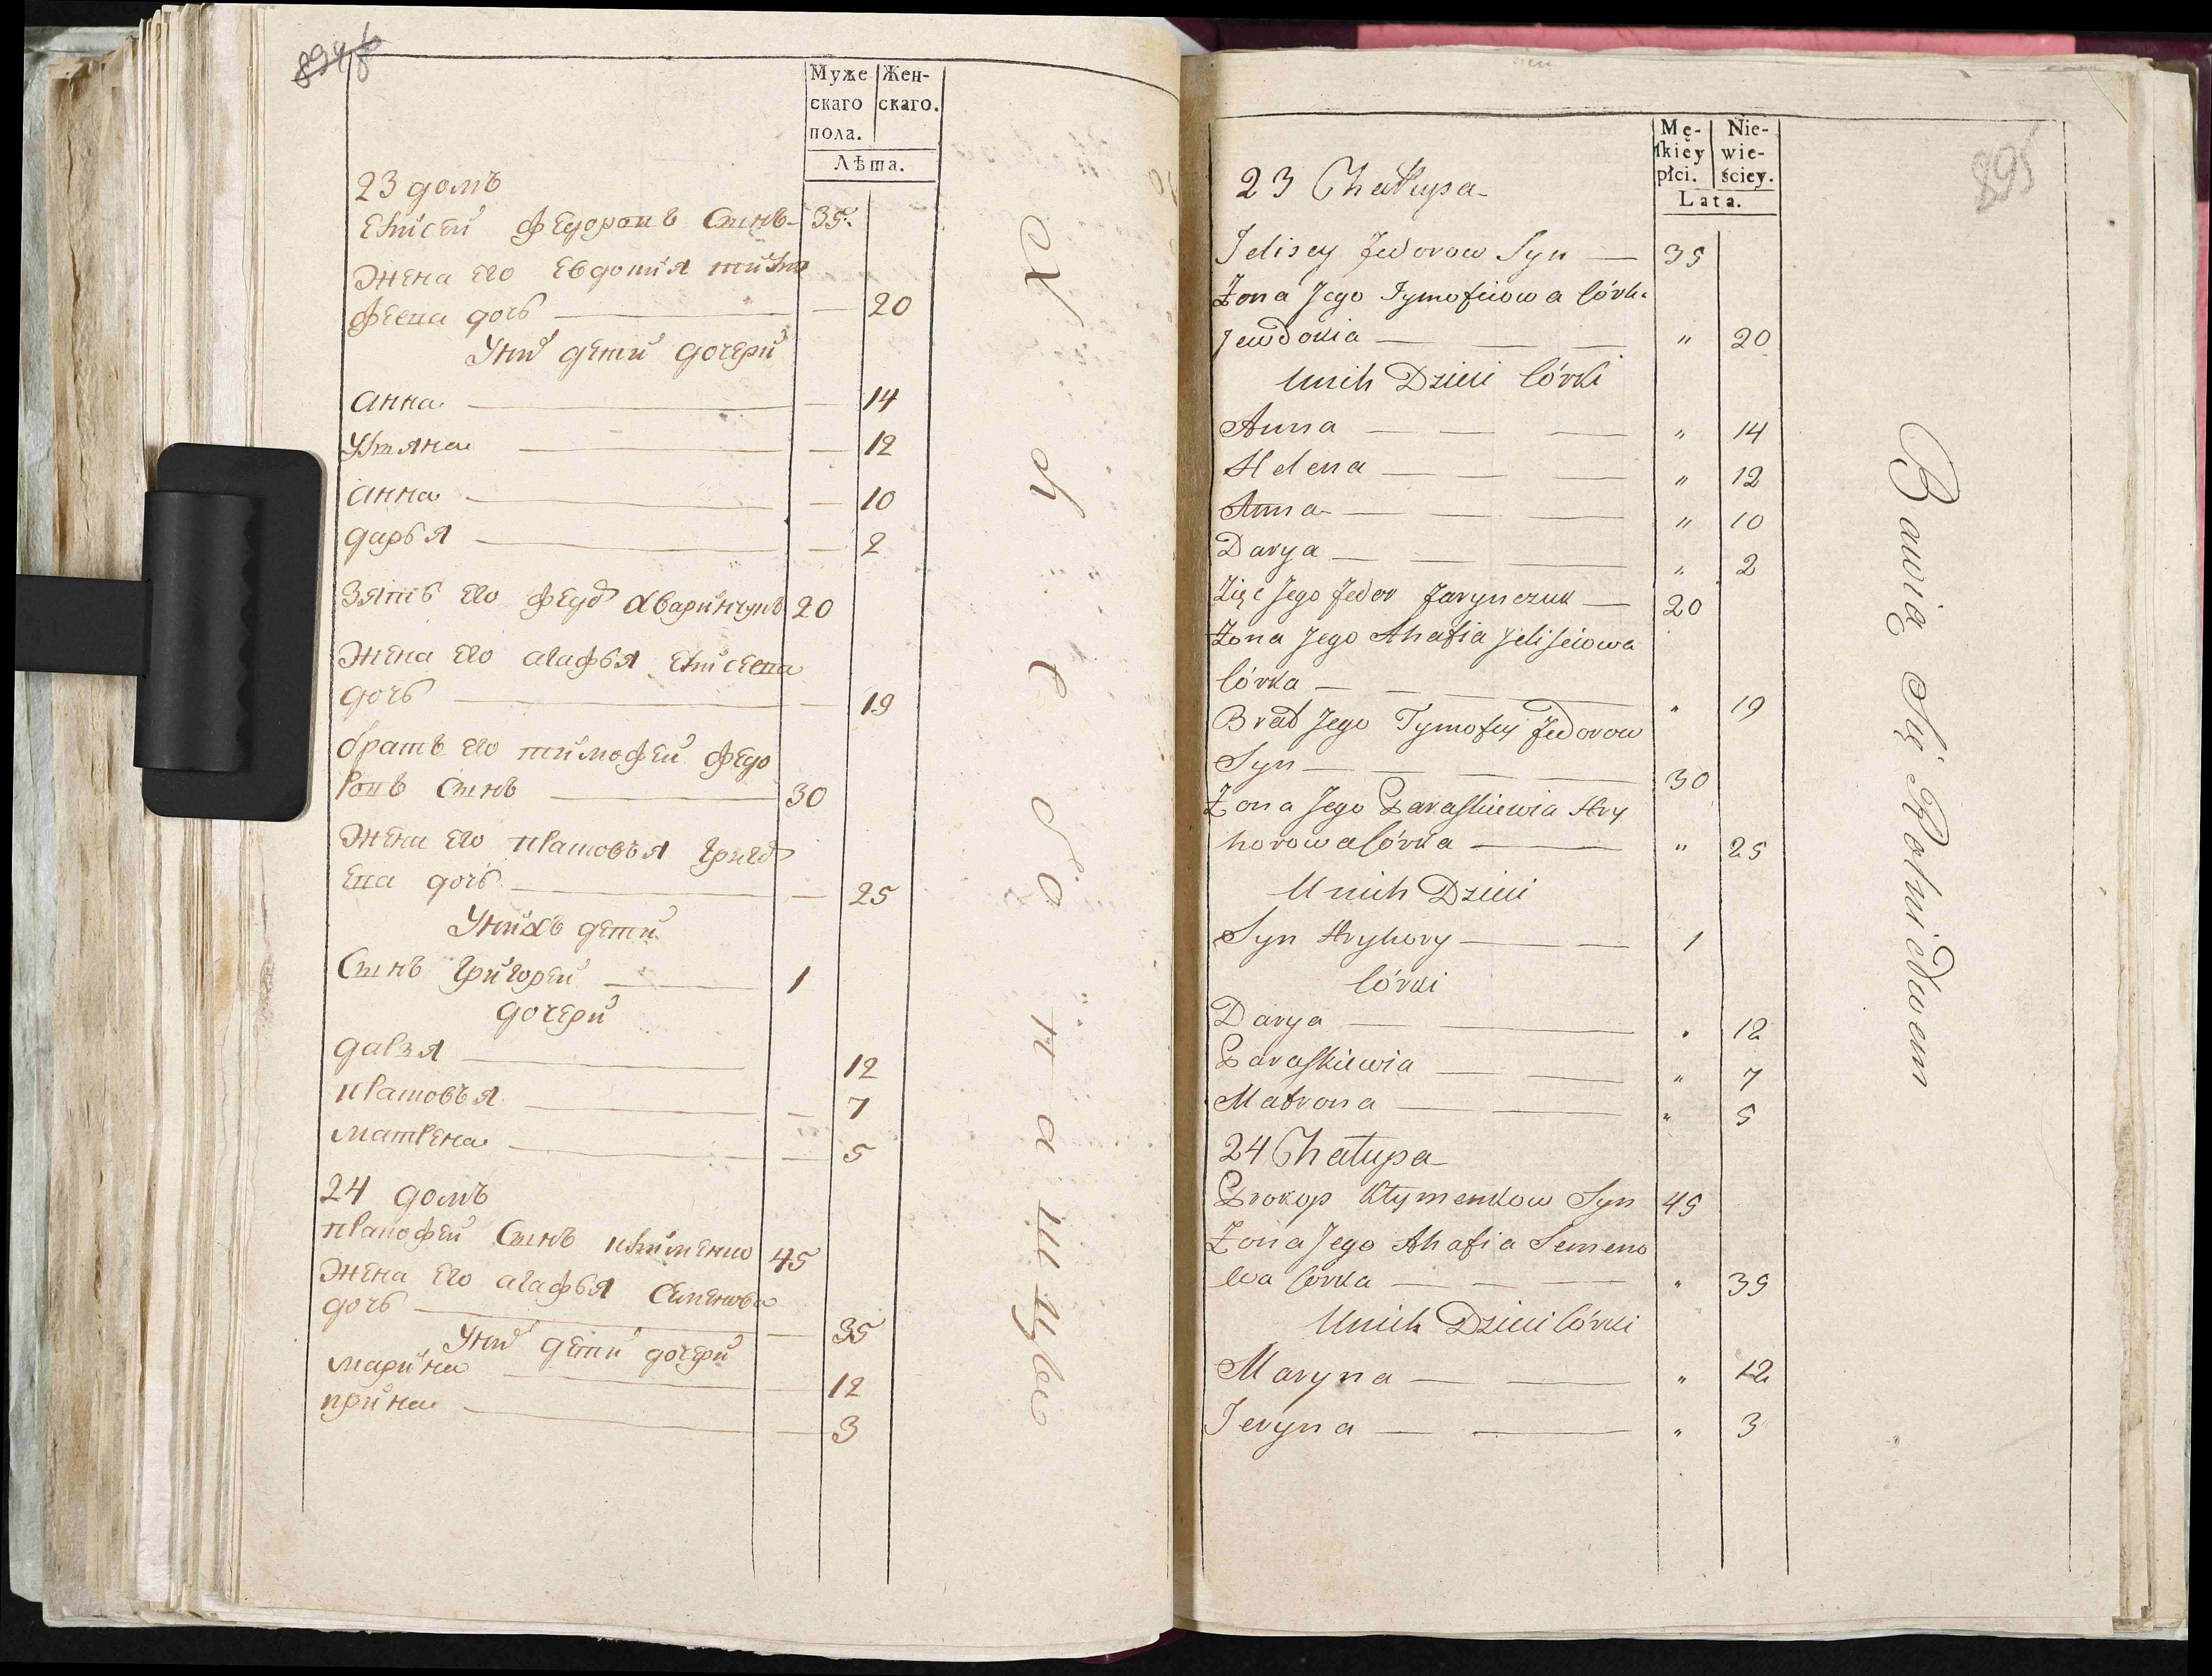 894 б
Муже Жен-
скаго скаго.
пола.
Лѣта.
23 домъ
Елисей федоровъ Сынъ 35
Жена Его Евдотия тимо
феева дочь 20
У них дети дочери
анна 14
Ульяна 12
анна 10
дарья 2
Зять Его фед Яваринчукъ 20
Жена Его агафья Елисеева
дочь 19
братъ Его тимофей федо
ровъ Сынъ 30
Жена Его прасковья григор
ева дочь 25
У нихъ дети
Сынъ григорей 1
дочери
дарья 12
прасковья 7
матрена 5
24 домъ
Сынъ клименко 45
Жена Его агафья Семенова
дочь 35
У них дети дочери
марина 12
ирина 3
895
Mę- Nie-
skiey wie-
płci. ściey.
Lata.
23 Chałupa
Jelisey Fedorow Syn 35
Żona Jego Tymofiiowa Córka
Jewdokia " 20
U nich Dzieci Córki
Anna " 14
Helena " 12
Anna " 10
Darya " 2
Zięć Jego Fedor Jarynczuk 20
Żona Jego Ahafia Jelisciowa
Córka " 19
Brat Jego Tymofiy Fedorow
Syn 30
Żona Jego Paraskiewia Hry
horowa Córka " 25
U nich Dzieci
Syn Hryhory 1
Córki
Darya " 12
Paraskiewia " 7
Matrona " 5
24 Chałupa
Prokop Kłymenkow Syn 45
Żona Jego Ahafia Semeno
wa Córka " 35
U nich Dzieci Córki
Maryna " 12
Jeryna " 3
Bawią Się Rolnictwem